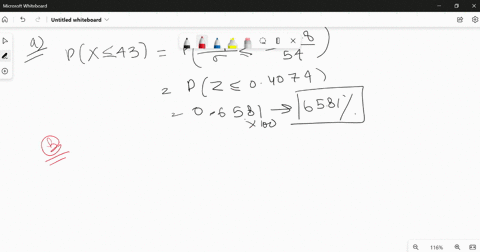 Microsoft Whiteboard
Untitled whiteboard
a) P(X ≤ 43) = P( ≤ 8
σ 54 )
= P(Z ≤ 0.4074)
= 0.6581 → 6581%
×100
b
116%